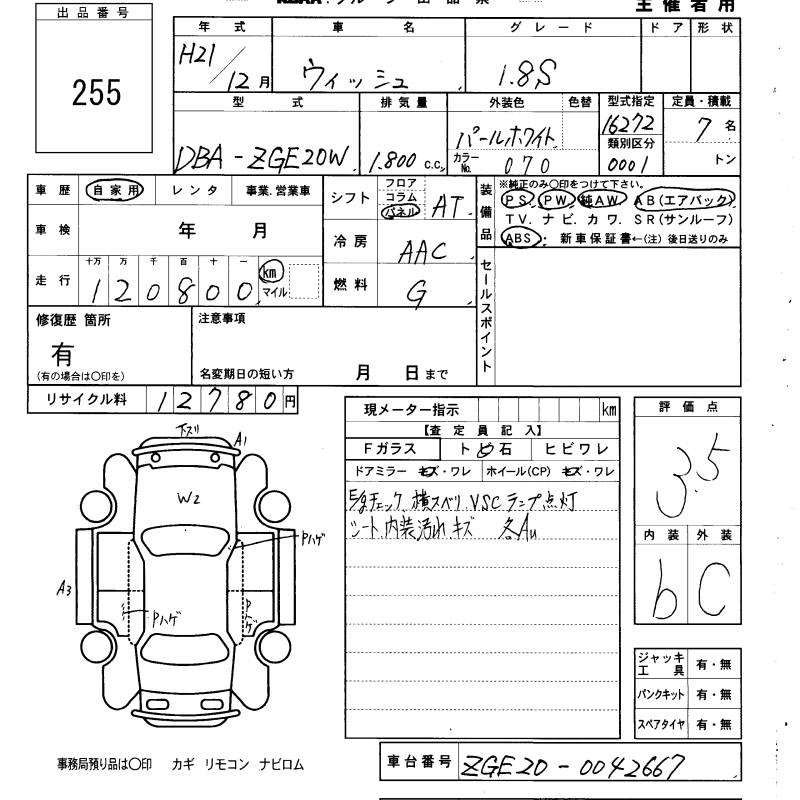 出品番号
255
主催者用
年式 車名 グレード ドア 形状
H21/12月 ウィッシュ 1.8S
型式 排気量 外装色 色替 型式指定 定員・積載
DBA-ZGE20W 1.800 c.c. パールホワイト 16272 7名
カラーNo. 070 類別区分 0001 トン
車歴 自家用 レンタ 事業.営業車
車検 年 月
走行 十万 万 千 百 十 一
120800 km マイル
シフト フロア コラム パネル AT
冷房 AAC
燃料 G
装備品 ※純正のみ〇印をつけて下さい。
PS. PW. 純AW. AB(エアバック)
TV. ナビ. カワ. SR(サンルーフ)
ABS・ 新車保証書←(注) 後日送りのみ
セールスポイント
修復歴 箇所
有
(有の場合は〇印を)
注意事項
名変期日の短い方 月 日まで
リサイクル料 12780円
現メーター指示 km
【査定員記入】
Fガラス トビ石 ヒビワレ
ドアミラー キズ・ワレ ホイール(CP) キズ・ワレ
E/gチェック 横スベリ VSC ランプ点灯
シート.内装汚れ キズ 各Au
評価点
3.5
内装 外装
b C
下ズリ A1
W2
Pハゲ
A3
Pハゲ
Pハゲ
ジャッキ工具 有・無
パンクキット 有・無
スペアタイヤ 有・無
事務局預り品は〇印 カギ リモコン ナビロム
車台番号 ZGE20-0042667